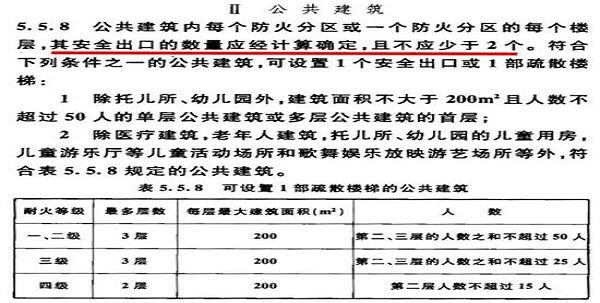 Ⅱ 公共建筑
5.5.8 公共建筑内每个防火分区或一个防火分区的每个楼
层,其安全出口的数量应经计算确定,且不应少于2个。符合
下列条件之一的公共建筑,可设置1个安全出口或1部疏散楼
梯:
1 除托儿所、幼儿园外,建筑面积不大于200m²且人数不
超过50人的单层公共建筑或多层公共建筑的首层;
2 除医疗建筑,老年人建筑,托儿所、幼儿园的儿童用房,
儿童游乐厅等儿童活动场所和歌舞娱乐放映游艺场所等外,符
合表5.5.8规定的公共建筑。
表5.5.8 可设置1部疏散楼梯的公共建筑
耐火等级 最多层数 每层最大建筑面积(m²) 人数
一、二级 3层 200 第二、三层的人数之和不超过50人
三级 3层 200 第二、三层的人数之和不超过25人
四级 2层 200 第二层人数不超过15人